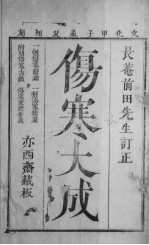 文化甲子孟夏翻刻
長菴前田先生訂正
傷寒大成
亦西齋藏板